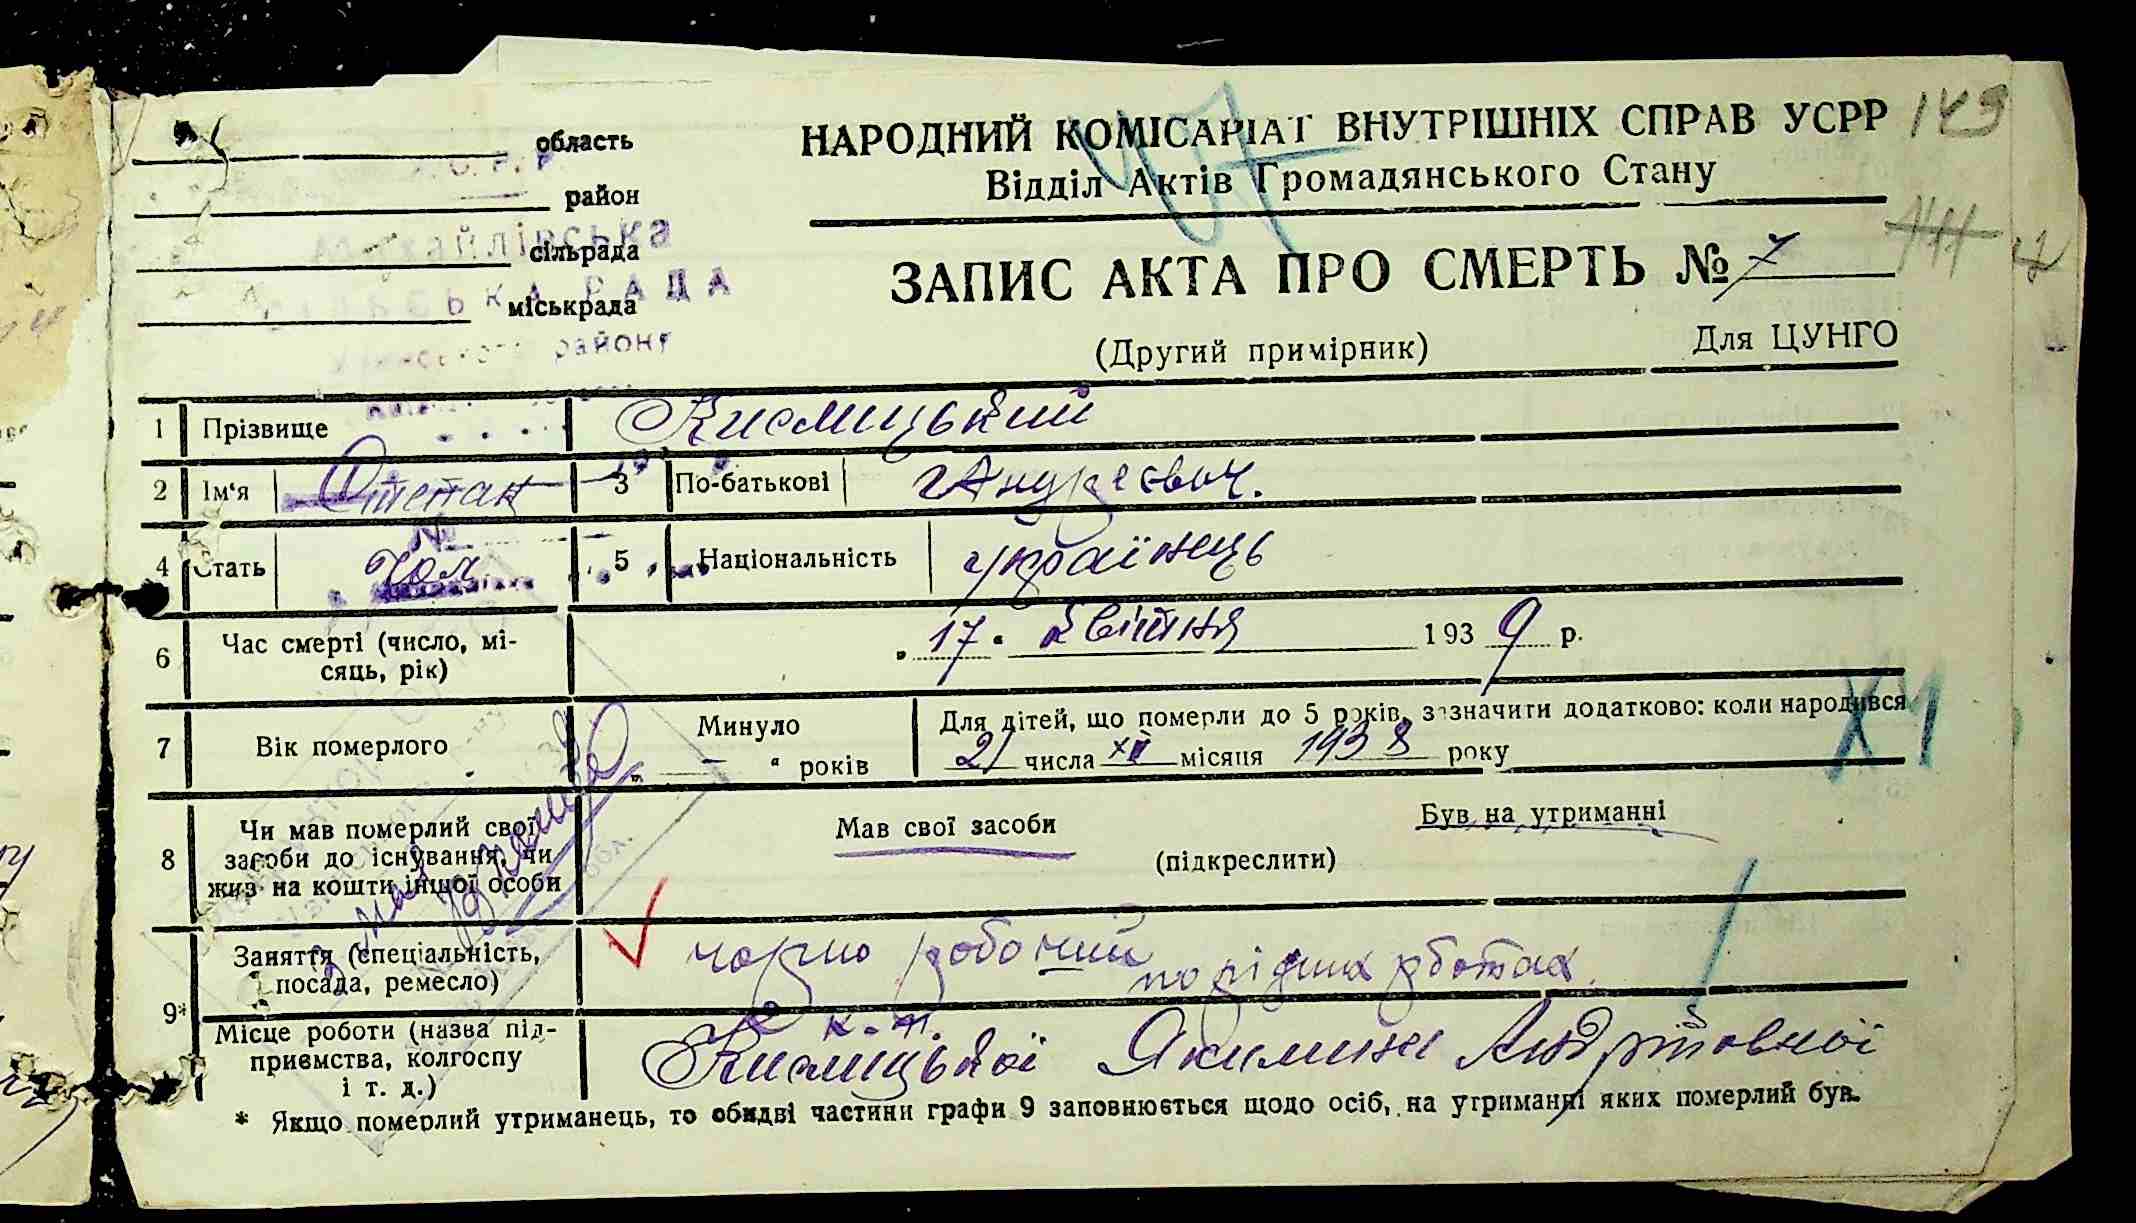 149
область
НАРОДНИЙ КОМІСАРІАТ ВНУТРІШНІХ СПРАВ УСРР
Відділ Актів Громадянського Стану
47
район
Михайлівська
сільрада
СІЛЬСЬКА РАДА
міськрада
району
144
ЗАПИС АКТА ПРО СМЕРТЬ № 7
(Другий примірник)
Для ЦУНГО
1 Прізвище Кислицький
2 Ім‘я Степан 3 По-батькові Андреєвич.
4 Стать Чол 5 Національність українець
6 Час смерті (число, мі-
сяць, рік)
„17“ Квітня 1939 р.
7 Вік померлого
Минуло
„ — “ років
Для дітей, що померли до 5 років, зазначити додатково: коли народився
21 числа XII місяця 1938 року
XI
8 Чи мав померлий свої
засоби до існування, чи
жив на кошти іншої особи
Мав свої засоби
Був на утриманні
(підкреслити)
9* Заняття (спеціальність,
посада, ремесло)
чорно робочий
по різних роботах.
Місце роботи (назва під-
приємства, колгоспу
і т. д.)
к-п.
Кислицької Якилини
* Якщо померлий утриманець, то обидві частини графи 9 заповнюється щодо осіб, на утриманні яких померлий був.